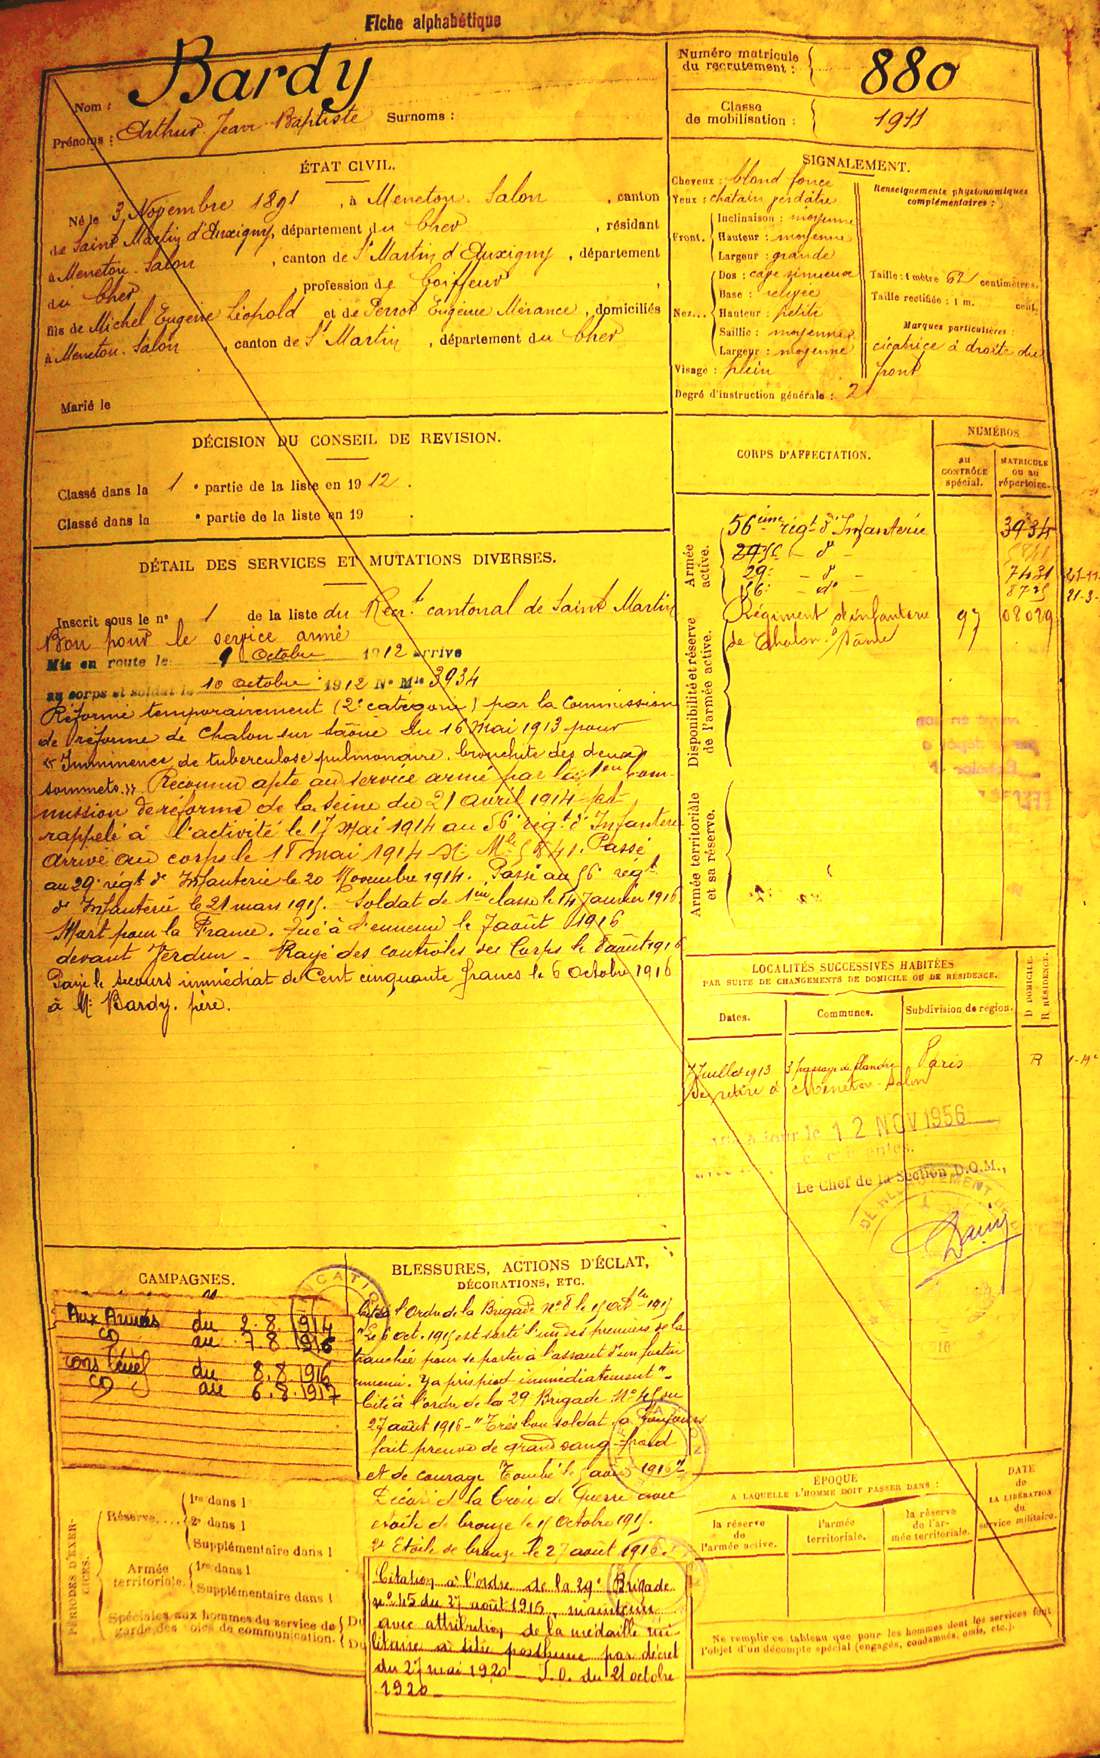 Fiche alphabétique
Nom : Bardy
Prénoms : Arthur Jean Baptiste Surnoms :
Numéro matricule du recrutement : 880
Classe de mobilisation : 1911
ÉTAT CIVIL.
Né le 3 Novembre 1891, à Menetou Salon, canton
de Saint Martin d'Auxigny, département du Cher, résidant
à Menetou-Salon, canton de St Martin d'Auxigny, département
du Cher, profession de Coiffeur,
fils de Michel Eugène Léopold et de Perrot Eugénie Mérance, domiciliés
à Menetou-Salon, canton de St Martin, département du Cher
Marié le
SIGNALEMENT.
Cheveux : blond foncé
Yeux : chatain verdâtre
Front. Inclinaison : moyenne
Hauteur : moyenne
Largeur : grande
Nez... Dos : cave sinueux
Base : relevée
Hauteur : petite
Saillie : moyenne
Largeur : moyenne
Visage : plein
Degré d'instruction générale : 2
Renseignements physionomiques complémentaires :
Taille : 1 mètre 62 centimètres.
Taille rectifiée : 1 m. cent.
Marques particulières :
cicatrice à droite du
front
DÉCISION DU CONSEIL DE REVISION.
Classé dans la 1 e partie de la liste en 1912.
Classé dans la e partie de la liste en 19 .
DÉTAIL DES SERVICES ET MUTATIONS DIVERSES.
Inscrit sous le n° 1 de la liste du Recrt cantonal de Saint Martin
Bon pour le service armé
Mis en route le 9 Octobre 1912 arrivé
au corps et soldat le 10 octobre 1912 No Mle 3934
Réformé temporairement (2e catégorie) par la Commission
de réforme de Chalon sur Saône du 16 mai 1913 pour
« Imminence de tuberculose pulmonaire, bronchite des deux
sommets. » Reconnu apte au service armé par la 1ère Com-
mission de réforme de la Seine du 21 avril 1914 est
rappelé à l'activité le 17 mai 1914 au 56e régt d'Infanterie
arrivé au corps le 18 mai 1914 No Mle 5841. Passé
au 29e régt d'Infanterie le 20 Novembre 1914. Passé au 56e régt
d'Infanterie le 21 mars 1915. Soldat de 1ère classe le 14 Janvier 1916
Mort pour la France. Tué à l'ennemi le 7 août 1916
devant Verdun - Rayé des contrôles du Corps le 8 août 1916
Payé le secours immédiat de Cent cinquante francs le 6 Octobre 1916
à Mr Bardy, père.
CORPS D'AFFECTATION.
NUMÉROS
au CONTRÔLE spécial.
MATRICULE ou au répertoire.
Armée active.
56ième régt d'Infanterie 3934
29e - do - 7431
56e - do - 8725
Disponibilité et réserve de l'armée active.
Régiment d'infanterie 97 08029
de Chalon s/ Saône
Armée territoriale et sa réserve.
LOCALITÉS SUCCESSIVES HABITÉES
PAR SUITE DE CHANGEMENTS DE DOMICILE OU DE RÉSIDENCE.
Dates. Communes. Subdivision de région. D DOMICILE. R RÉSIDENCE.
7 Juillet 1913 3 passage de Flandre Paris R
Se retire à Menetou-Salon
12 NOV 1956
Le Chef de la Section D.O.M.,
CAMPAGNES.
Aux Armées du 2.8.1914
au 7.8.1916
du 8.8.1916
au 6.8.1917
BLESSURES, ACTIONS D'ÉCLAT,
DÉCORATIONS, ETC.
Cité à l'Ordre de la Brigade No 8 le 15 octbre 1915
"Le 6 oct. 1915 est sorti l'un des premiers de la
tranchée pour se porter à l'assaut d'un fortin
ennemi. Y a pris pied immédiatement" -
Cité à l'ordre de la 29 Brigade No 45 du
27 août 1916 - "Très bon soldat a toujours
fait preuve de grand sang-froid
et de courage Tombé le août 1916"
Décoré de la Croix de Guerre avec
étoile de bronze le 15 Octobre 1915.
2e Etoile de bronze le 27 août 1916.
Citation à l'ordre de la 29e Brigade
no 45 du 27 août 1916, maintenue
avec attribution de la médaille mi-
litaire à titre posthume par décret
du 27 mai 1920 - J.O. du 21 octobre
1920 -
PÉRIODES D'EXERCICES.
Réserve.... 1re dans l
2e dans l
Supplémentaire dans l
Armée territoriale. 1re dans l
Supplémentaire dans l
Spéciales aux hommes du service de garde des voies de communication. Du
Du
ÉPOQUE
A LAQUELLE L'HOMME DOIT PASSER DANS :
la réserve de l'armée active.
l'armée territoriale.
la réserve de l'armée territoriale.
DATE de LA LIBÉRATION du service militaire.
Ne remplir ce tableau que pour les hommes dont les services font
l'objet d'un décompte spécial (engagés, condamnés, omis, etc.).